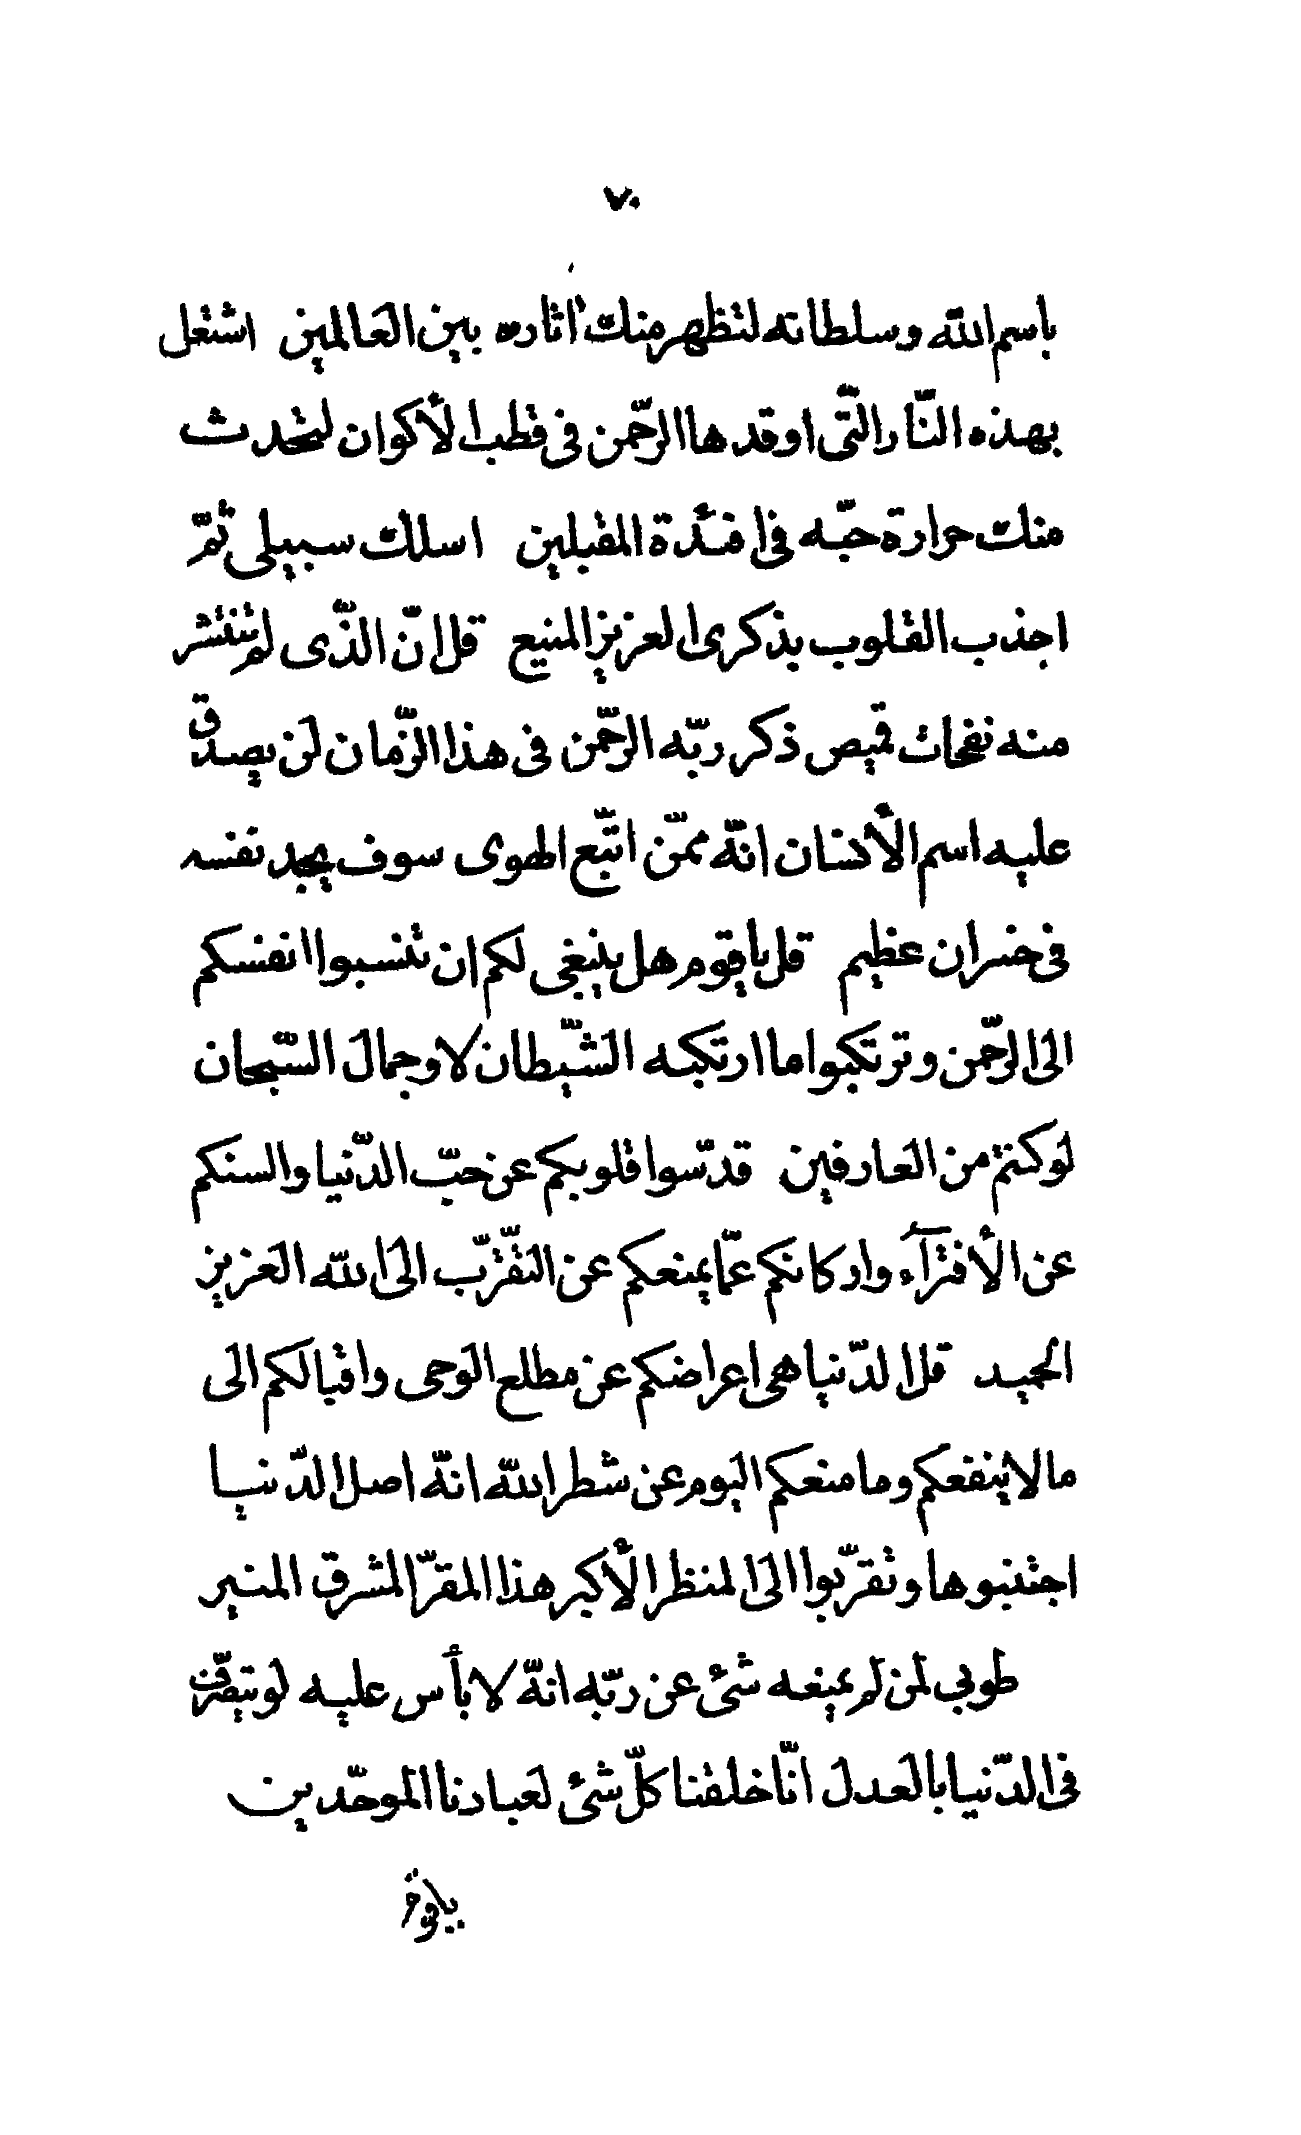 ٧٠
باسم الله وسلطانه لتظهر منك اثاره بين العالمين اشتعل
بهذه النّار الّتی اوقدها الرحّمن فی قطب الأکوان لتحدث
منك حرارة حبّه فی افئدة المقبلین اسلك سبیلی ثمّ
اجذب القلوب بذکری العزیز المنیع قل انّ الذّی لم تنتشر
منه نفحات قمیص ذکر ربّه الرحّمن فی هذا الزّمان لن یصدق
علیه اسم الأنسان انّه ممّن اتّبع الهوی سوف یجد نفسه
فی خسران عظیم قل یا قوم هل ینبغی لکم ان تنسبوا انفسکم
الی الرحّمن و ترتکبوا ما ارتکبه الشّیطان لا و جمال السّبحان
لو کنتم من العارفین قدّسوا قلوبکم عن حبّ الدّنیا و السنکم
عن الأفترآء و ارکانکم عمّا یمنعکم عن التّقرّب الی الله العزیز
الحمید قل الدّنیا هی اعراضکم عن مطلع الوحی و اقبالکم الی
ما لا ینفعکم و ما منعکم الیوم عن شطر الله انّه اصل الدّنیا
اجتنبوها و تقرّبوا الی المنظر الأکبر هذا المقرّ المشرق المنیر
طوبی لمن لم یمنعه شئ عن ربّه انّه لا بأس علیه لو یتصرّف
فی الدّنیا بالعدل انّا خلقنا کلّ شئ لعبادنا الموحّدین
یا قوم